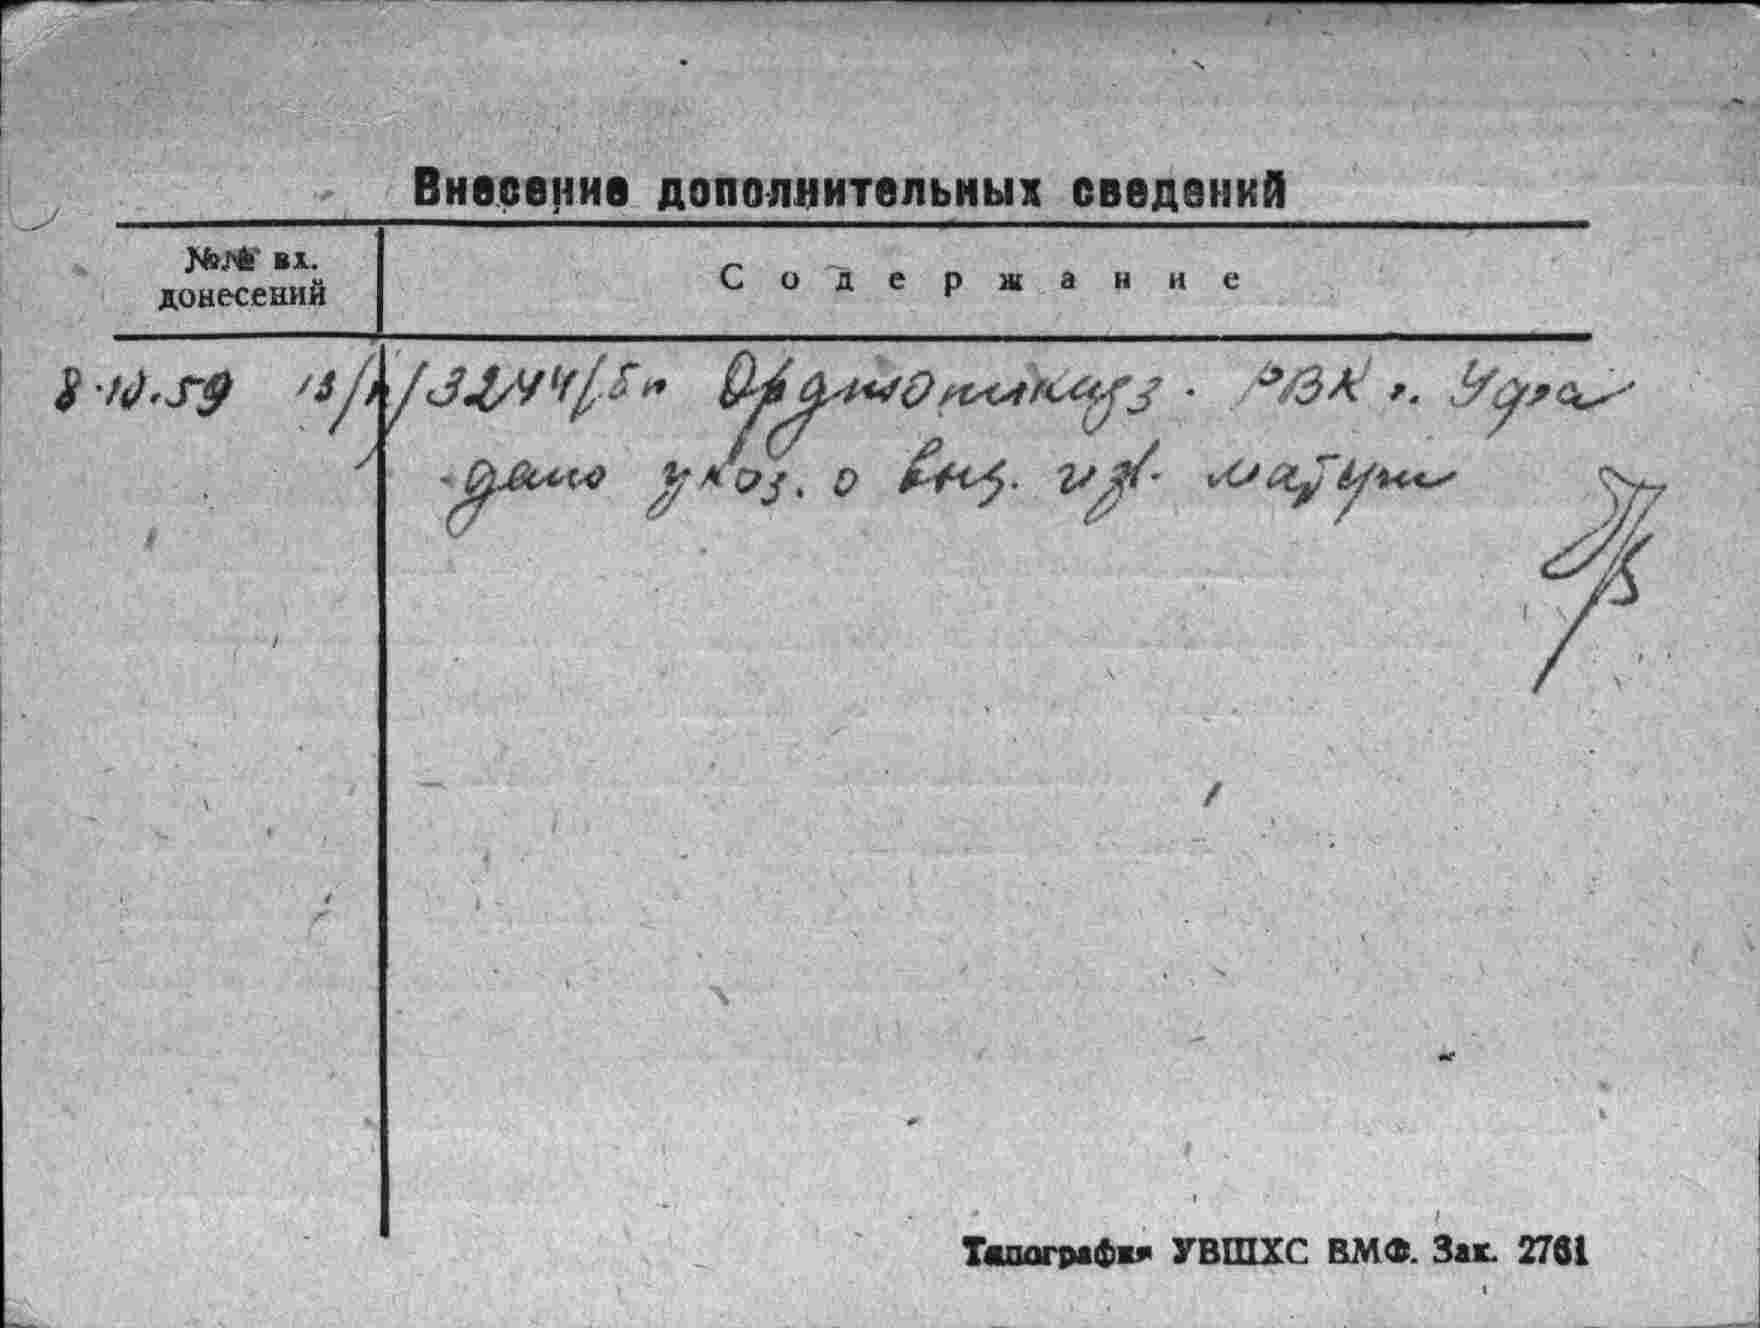 Внесение дополнительных сведений
№№ вх.
донесений
Содержание
8.10.59 Орджоникидз. РВК
дано указ. о матери
Типография УВШХС ВМФ. Зак. 2761